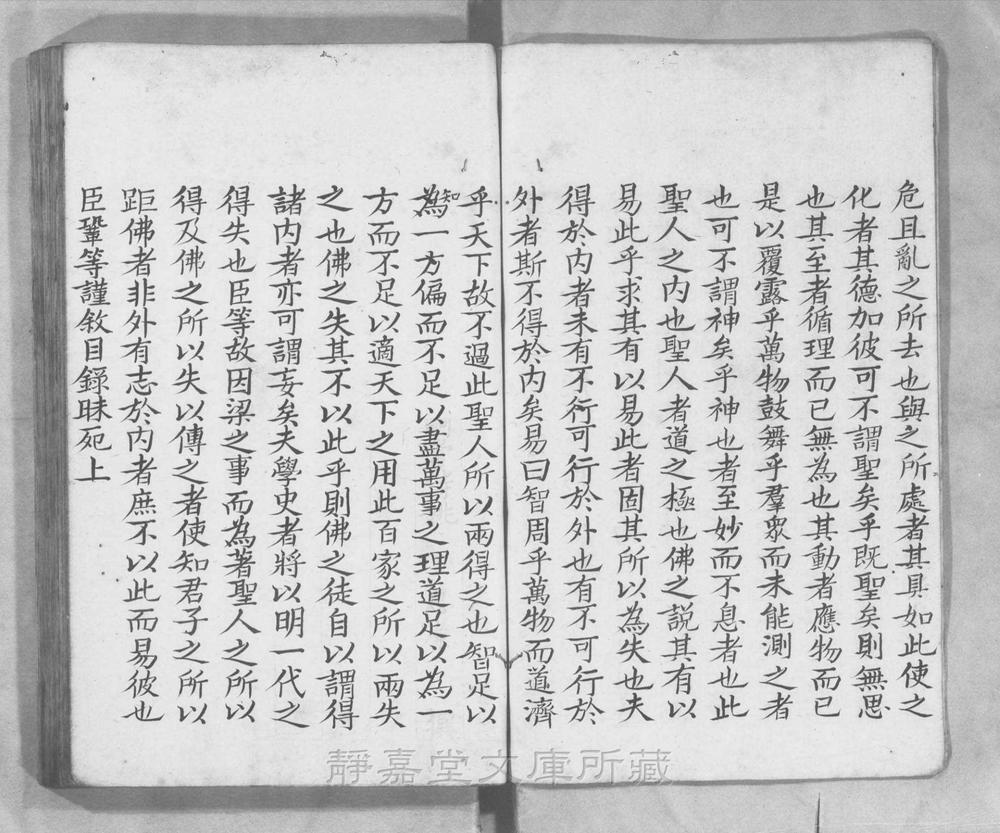 危且亂之所去也與之所處者其具如此使之
化者其德加彼可不謂聖矣乎既聖矣則無思
也其至者循理而已無為也其動者應物而已
是以覆露乎萬物鼓舞乎羣衆而未能測之者
也可不謂神矣乎神也者至妙而不息者也此
聖人之内也聖人者道之極也佛之説其有以
易此乎求其有以易此者固其所以為失也夫
得於内者未有不可行於外也有不可行於
外者斯不得於内矣易曰智周乎萬物而道濟
乎天下故不過此聖人所以兩得之也智足以
知
為一方偏而不足以盡萬事之理道足以為一
方而不足以適天下之用此百家之所以兩失
之也佛之失其不以此乎則佛之徒自以謂得
諸内者亦可謂妄矣夫學史者將以明一代之
得失也臣等故因梁之事而為著聖人之所以
得及佛之所以失以傳之者使知君子之所以
距佛者非外有志於内者庶不以此而易彼也
臣鞏等謹敘目錄昧死上
靜嘉堂文庫所藏